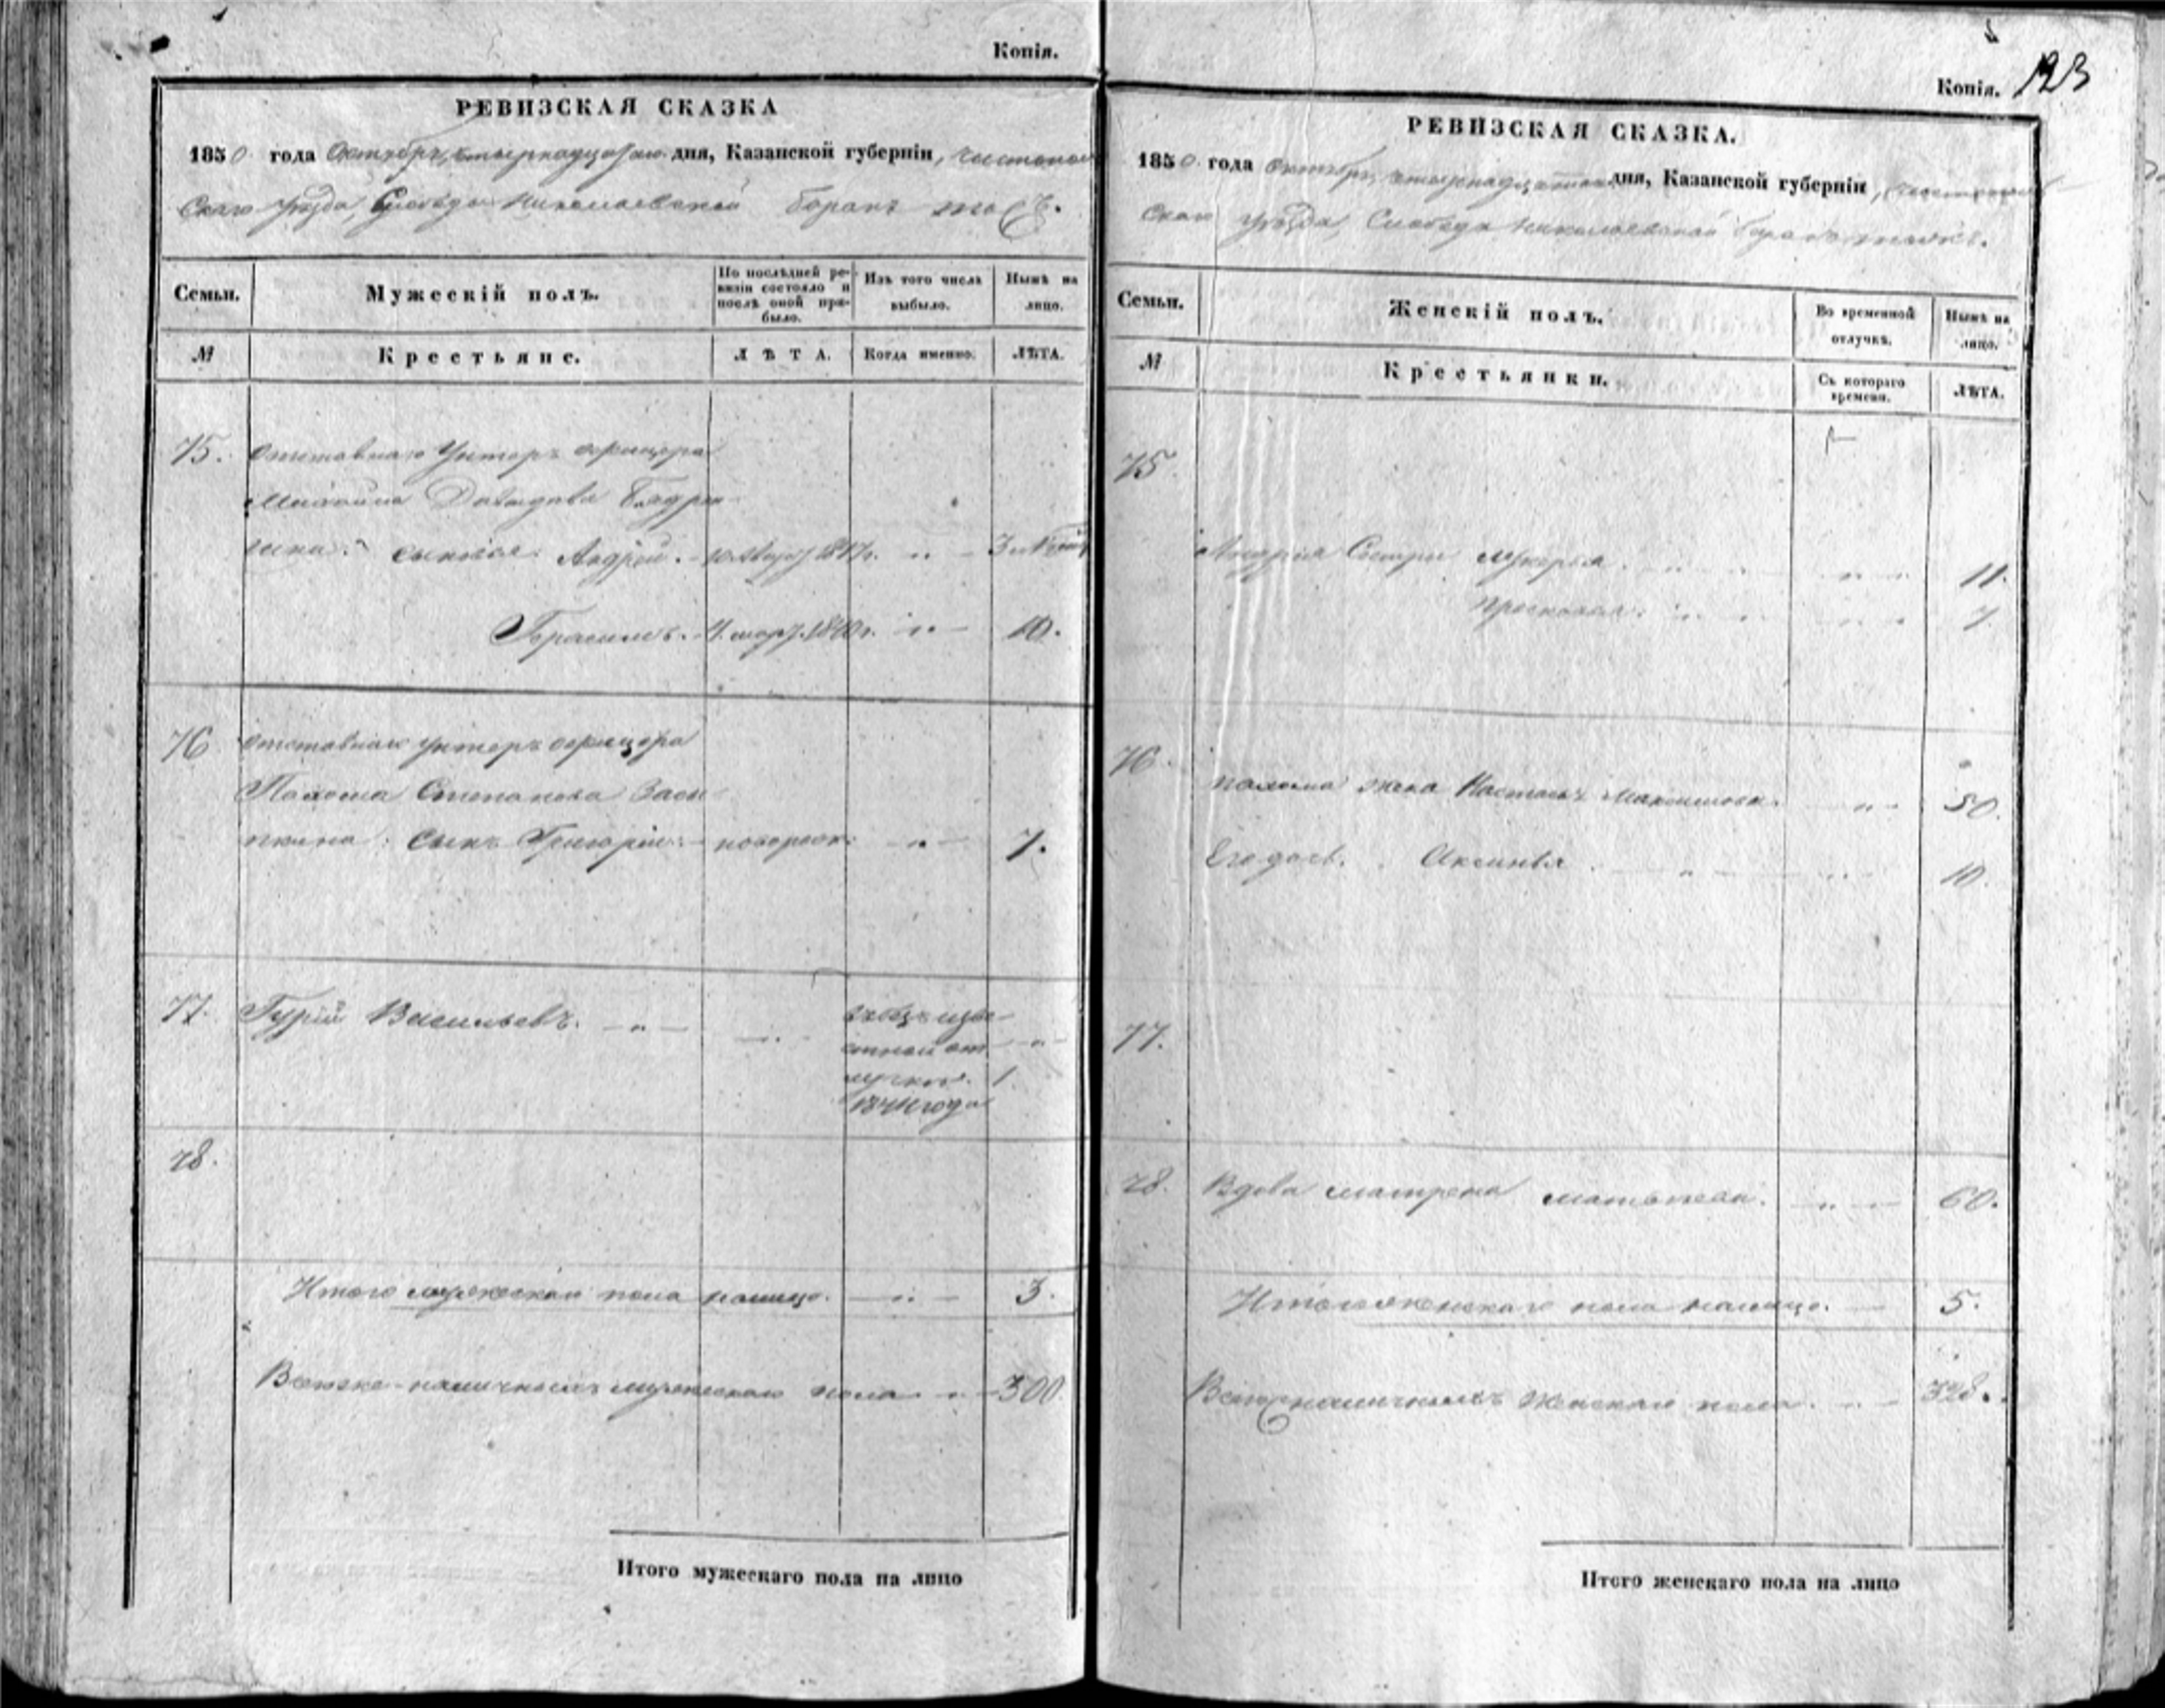 Копія.
РЕВИЗСКАЯ СКАЗКА
1850 года Октября четырнадцатаго дня, Казанской губерніи, Чистополь
скаго уѣзда, Слободы Николаевской Баранъ тожъ.
Семьи. Мужескій полъ. По послѣдней ревизіи состояло и послѣ оной прибыло. Изъ того числа выбыло. Нынѣ на лицо.
№ Крестьяне. ЛѢТА. Когда именно. ЛѢТА.
75. отставнаго Унтеръ офицера
Михайла Давыдова
сыновья: Андрей. 1847г. " 3
Герасимъ. 4. мар. 1840г. " 10.
76 отставнаго унтеръ офицера
Пахома Степанова Засы
пкина: сынъ Григорій новорож. " 7.
77. Гурій Васильевъ. " " въ безъизвѣ
стной от "
лучкѣ. 1
1841 года
78.
Итого мужескаго пола налицо. " 3.
Всего же наличныхъ мужескаго пола " 300.
Итого мужескаго пола на лицо
Копія. 123
РЕВИЗСКАЯ СКАЗКА.
1850 года Октября четырнадцатаго дня, Казанской губерніи, Чистополь
скаго уѣзда, Слободы Николаевской Баранъ тожъ.
Семьи. Женскій полъ. Во временной отлучкѣ. Нынѣ на лицо.
№ Крестьянки. Съ котораго времени. ЛѢТА.
75
Андрея Сестры Лукерья " " 11.
Прасковья. " " 7
76. Пахома жена Настасья Максимова. " 50.
Его дочь. Аксинья " " 10.
77.
78. Вдова Матрена " 60.
Итого женскаго пола налицо. 5.
Всего наличныхъ женскаго пола. " 328.
Итого женскаго пола на лицо